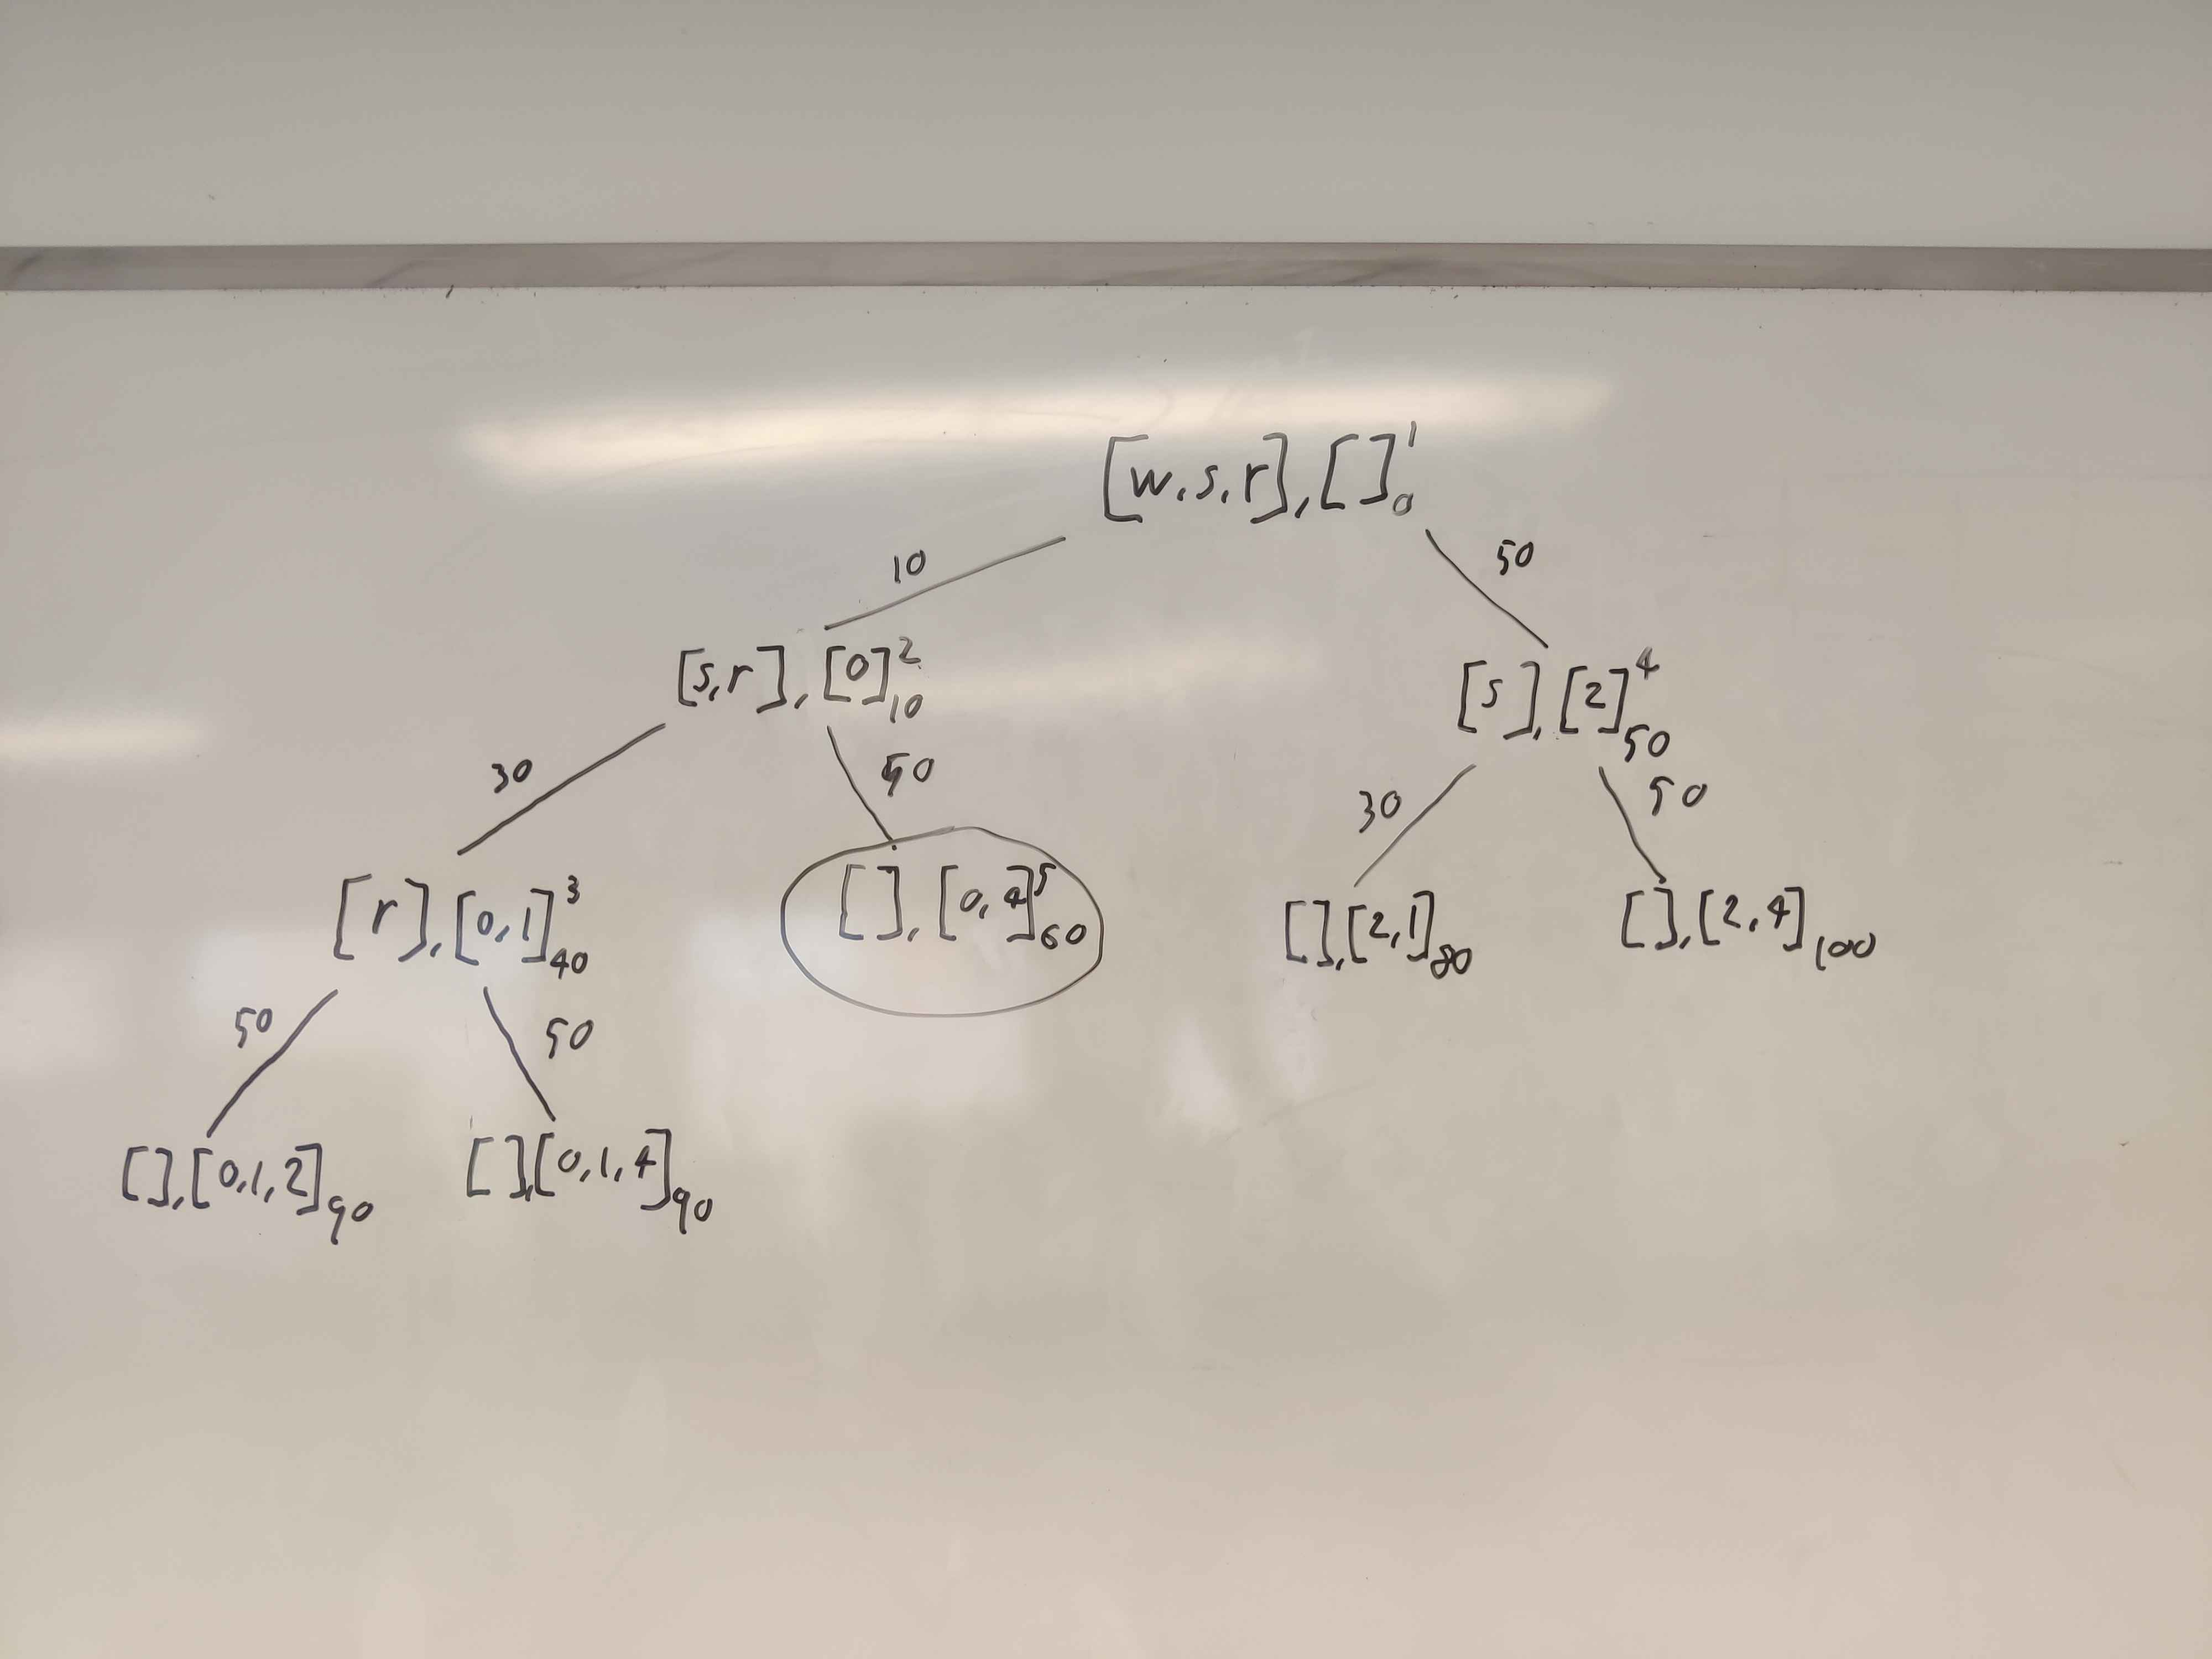 [w,s,r],[]¹₀
10 50
[s,r],[0]²₁₀ [s],[2]⁴₅₀
30 50 30 50
[r],[0,1]³₄₀ [],[0,4]⁵₆₀ [],[2,1]₈₀ [],[2,4]₁₀₀
50 50
[],[0,1,2]₉₀ [],[0,1,4]₉₀